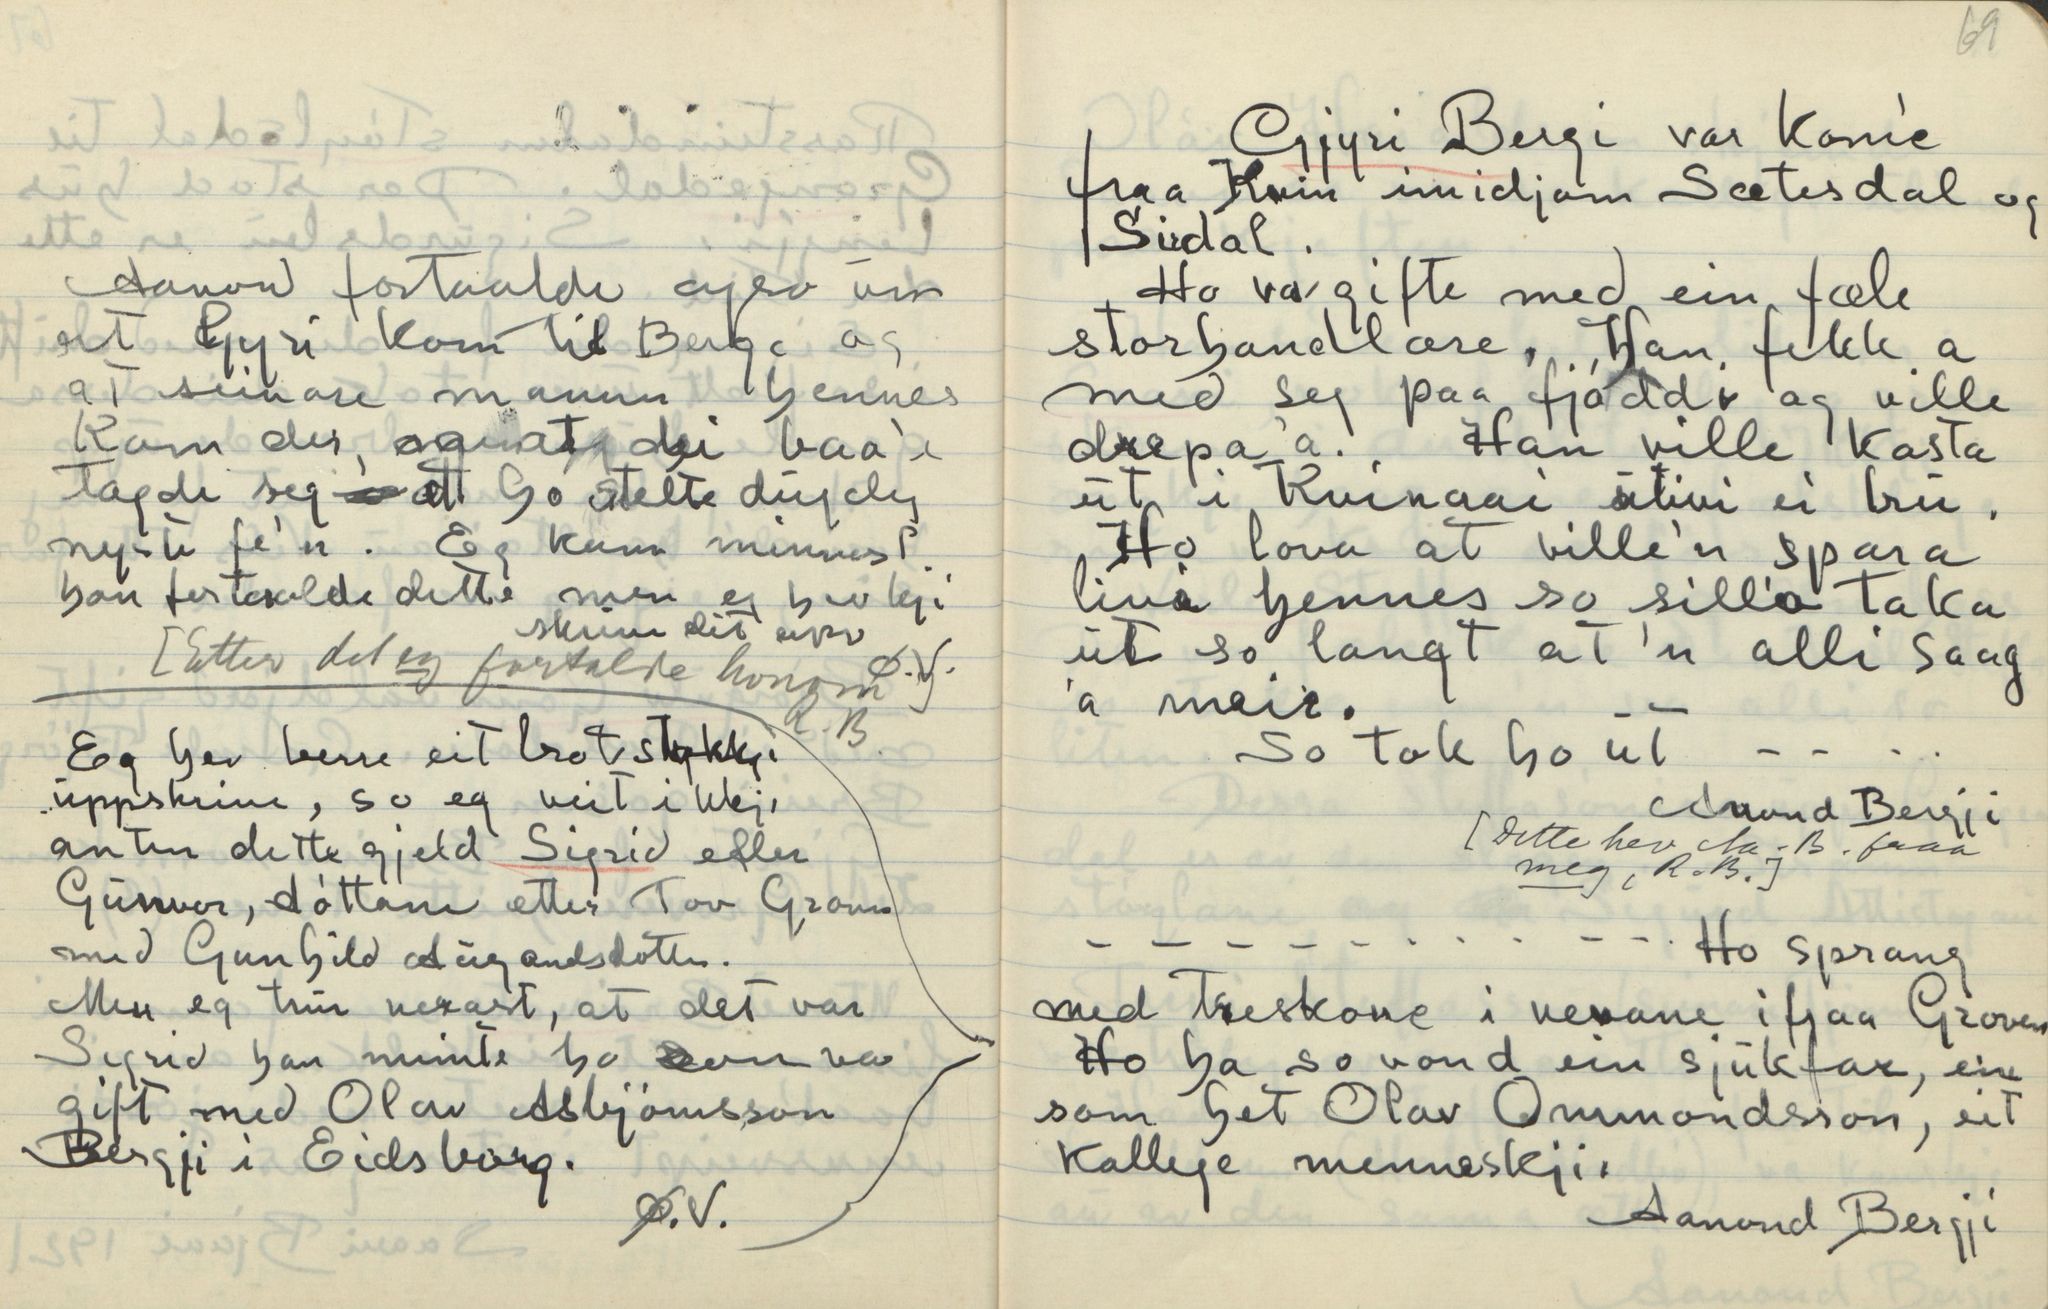 Aanond fortaalde ogso um
at Gyri kom til Berge og
at seinare mannen hennes
kom der, og at dei baa'e
tagde seg at ho stelte dugeleg
nyste fe'n. Eg kann minnest
han fortaalde dette men eg hev kji
skrive dit upp Ø.V.
[Etter det eg fortalde honom]
R.B.
Eg hev berre eit brotstykkji
uppskrive, so eg veit ikkji
anten dette gjeld Sigrid efler
Gunvor, dóttane etter Tov Groven
med Gunhild Augandsdotter.
Men eg trur nerast, at det var
Sigrid han meinte ho som va
gift med Olav Asbjørnsson
Bergji i Eidsborg.
Ø.V.
69
Gjyri Bergi var kom'e
fraa Kvin imidjom Sætesdal og
Sirdal.
Ho va gifte med ein fæle
storhandlare. Han fekk a
med seg paa fjóddi og ville
drepa 'a. Han ville kasta
út i Kvinaai útivi ei bru.
Ho lova at ville'n spara
livi hennes so sill'o taka
út so langt at 'n alli saag
'a meir.
So tok ho út - - - -
Anond Bergji
[Dette hev Aa. B. fraa
meg, R.B.]
- - - - - - - - - - - Ho sprang
med treskone i nevane ifraa Groven
Ho ha so vond ein sjukfar, ein
som het Olav Ommondsson, eit
kallege menneskji.
Aanond Bergji